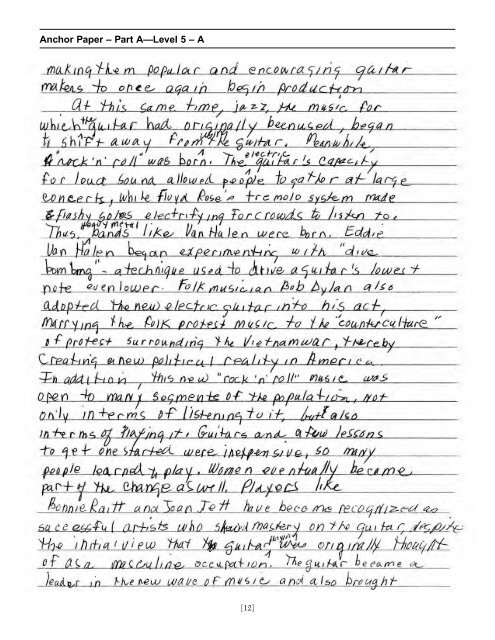 Anchor Paper – Part A—Level 5 – A
making them popular and encouraging guitar
makers to once again begin production
At this same time, jazz, the music for
which the guitar had originally been used, began
to shift away from using the guitar. Meanwhile,
"rock 'n' roll" was born. The electric guitar's capacity
for loud sound allowed people to gather at large
concerts, while Floyd Rose's tremolo system made
flashy solos electrifying for crowds to listen to.
Thus, heavy metal bands like Van Halen were born. Eddie
Van Halen began experimenting with "dive
bombing" - a technique used to drive a guitar's lowest
note even lower. Folk musician Bob Dylan also
adopted the new electric guitar into his act,
marrying the folk protest music to the "counterculture"
of protest surrounding the Vietnam war, thereby
Creating a new political reality in America.
In addition, this new "rock 'n' roll" music was
open to many segments of the population, not
only in terms of listening to it, but also
in terms of playing it. Guitars and a few lessons
to get one started were inexpensive, so many
people learned to play. Women eventually became
part of the change as well. Players like
Bonnie Raitt and Joan Jett have become recognized as
successful artists who showed mastery on the guitar, despite
the initial view that guitar playing was originally thought
of as a masculine occupation. The guitar became a
leader in the new wave of music and also brought
[12]